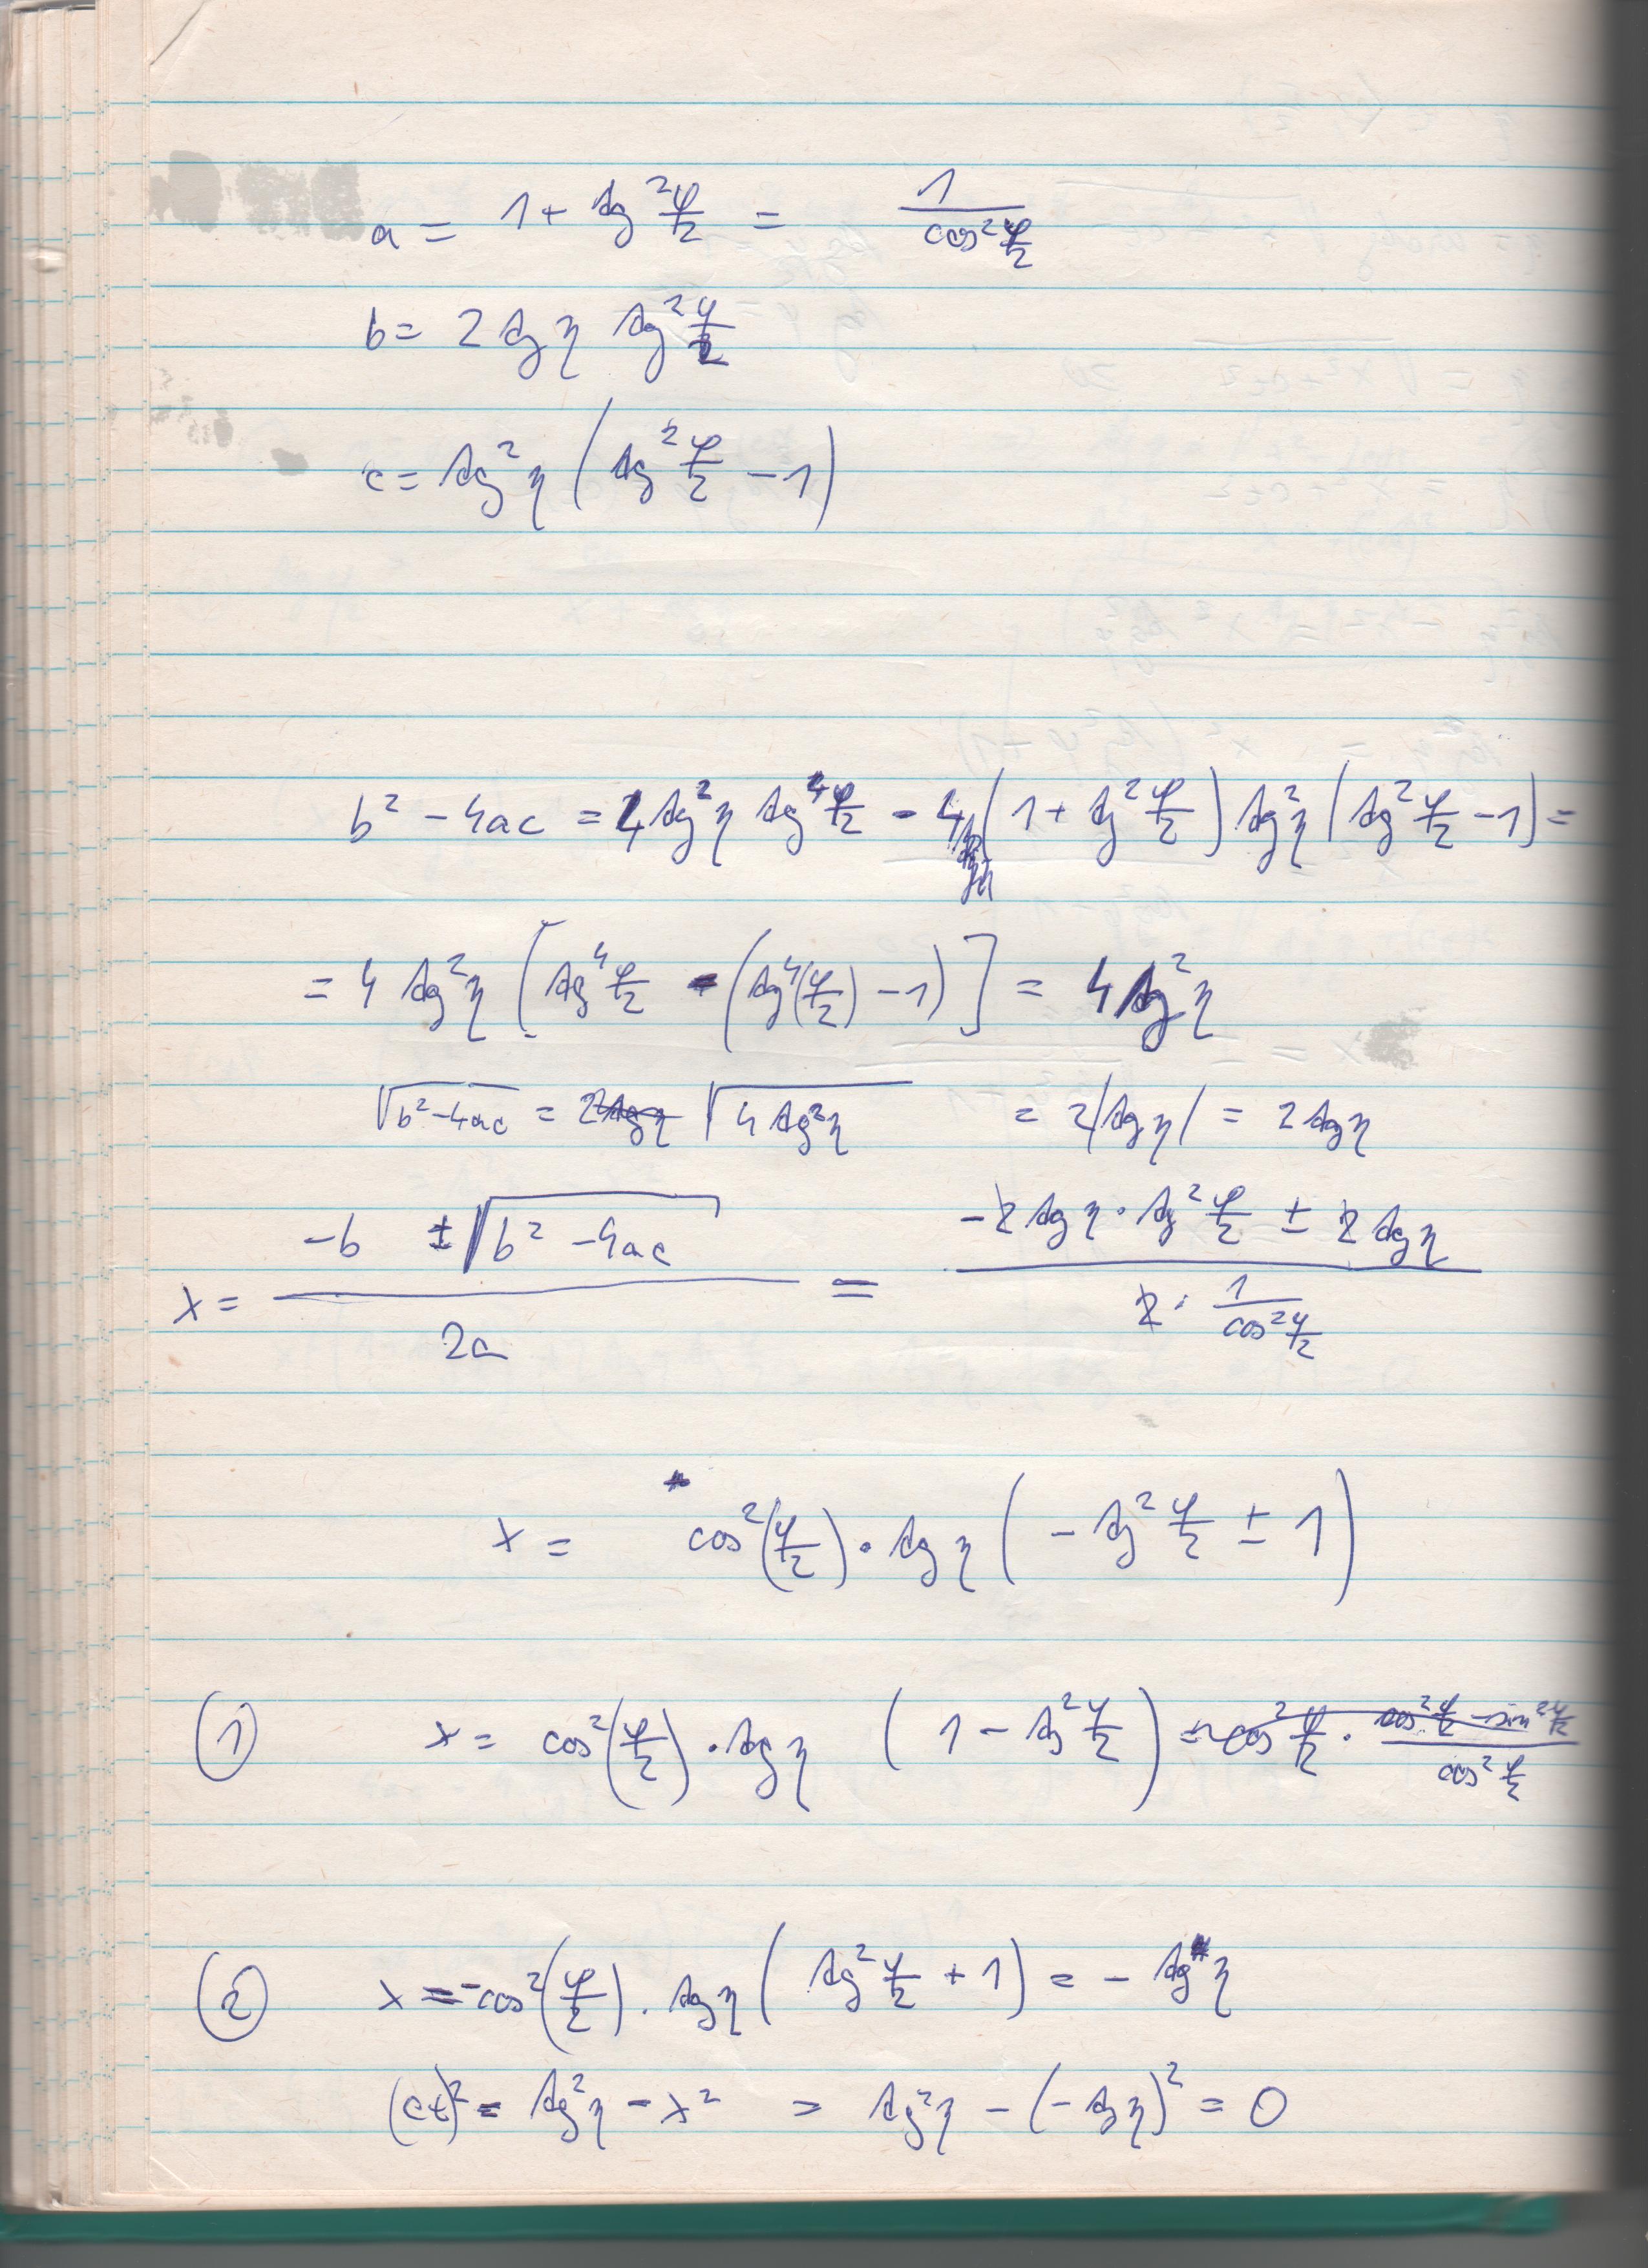 a = 1 + tg² φ/2 = 1/cos² φ/2
b = 2 tg η tg² φ/2
c = tg² η (tg² φ/2 − 1)
b² − 4ac = 4 tg² η tg⁴ φ/2 − 4 (1 + tg² φ/2) tg² η (tg² φ/2 − 1) =
= 4 tg² η [tg⁴ φ/2 − (tg⁴(φ/2) − 1)] = 4 tg² η
√(b² − 4ac) = 2 tg η √(4 tg² η) = 2|tg η| = 2 tg η
x = (−b ± √(b² − 4ac)) / 2a = (−2 tg η · tg² φ/2 ± 2 tg η) / (2 · 1/cos² φ/2)
x = cos²(φ/2) · tg η (− tg² φ/2 ± 1)
① x = cos²(φ/2) · tg η (1 − tg² φ/2) = cos² φ/2 · (cos² φ/2 − sin² φ/2) / cos² φ/2
② x = −cos²(φ/2) · tg η (tg² φ/2 + 1) = − tg η
(ct)² = tg² η − x² = tg² η − (− tg η)² = 0